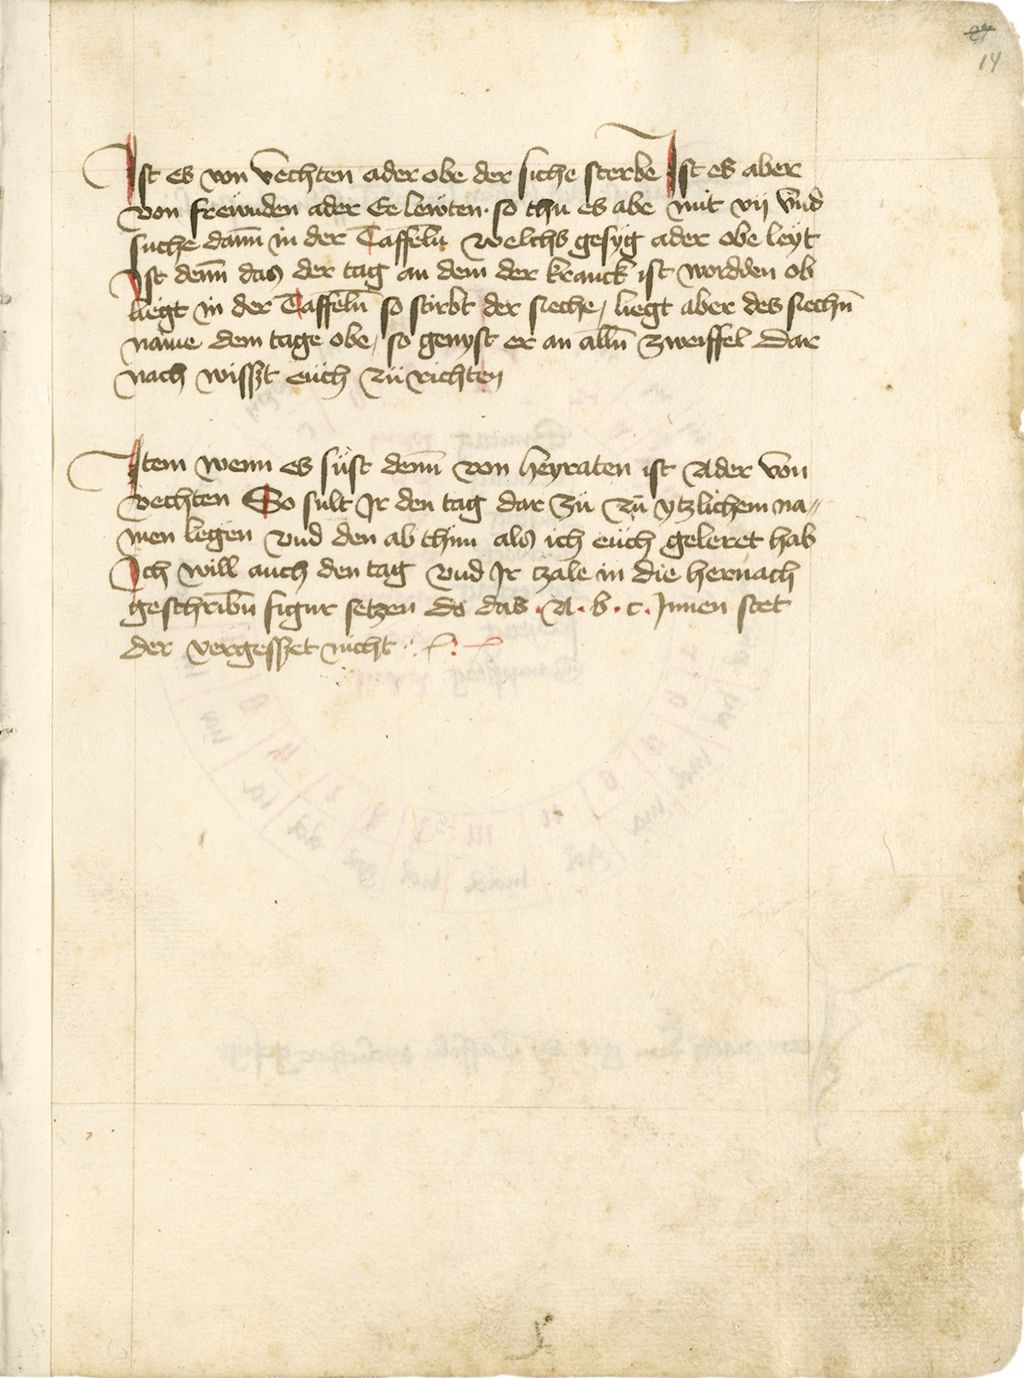 14
Ist es von vechten ader obe der siche sterbe Ist es aber
von frewnden ader Ee lewten · so thu es abe mit vij vnd
suche dann̄ in der Taffeln welchs gesyg ader obe leyt
Ist denn̄ das der tag an dem der kranck ist wordden ob
liegt in der Taffeln̄ so stirbt der sieche / liegt aber des siechn̄
name dem tage obe / so genyst er an alln̄ zweiffel Dar
nach wisszt euch zu richten
Item wenn es süst denn̄ von heyraten ist Ader von
vechten So sult Ir den tag dar zü zü ytzlichem na〃
men legen vnd den ab thun als ich euch geleret hab
Ich will auch den tag vnd Ir tzale in die hernach
geschribn̄ figur setzen do das · A · b · c · Innen stet
der vergesszet nicht